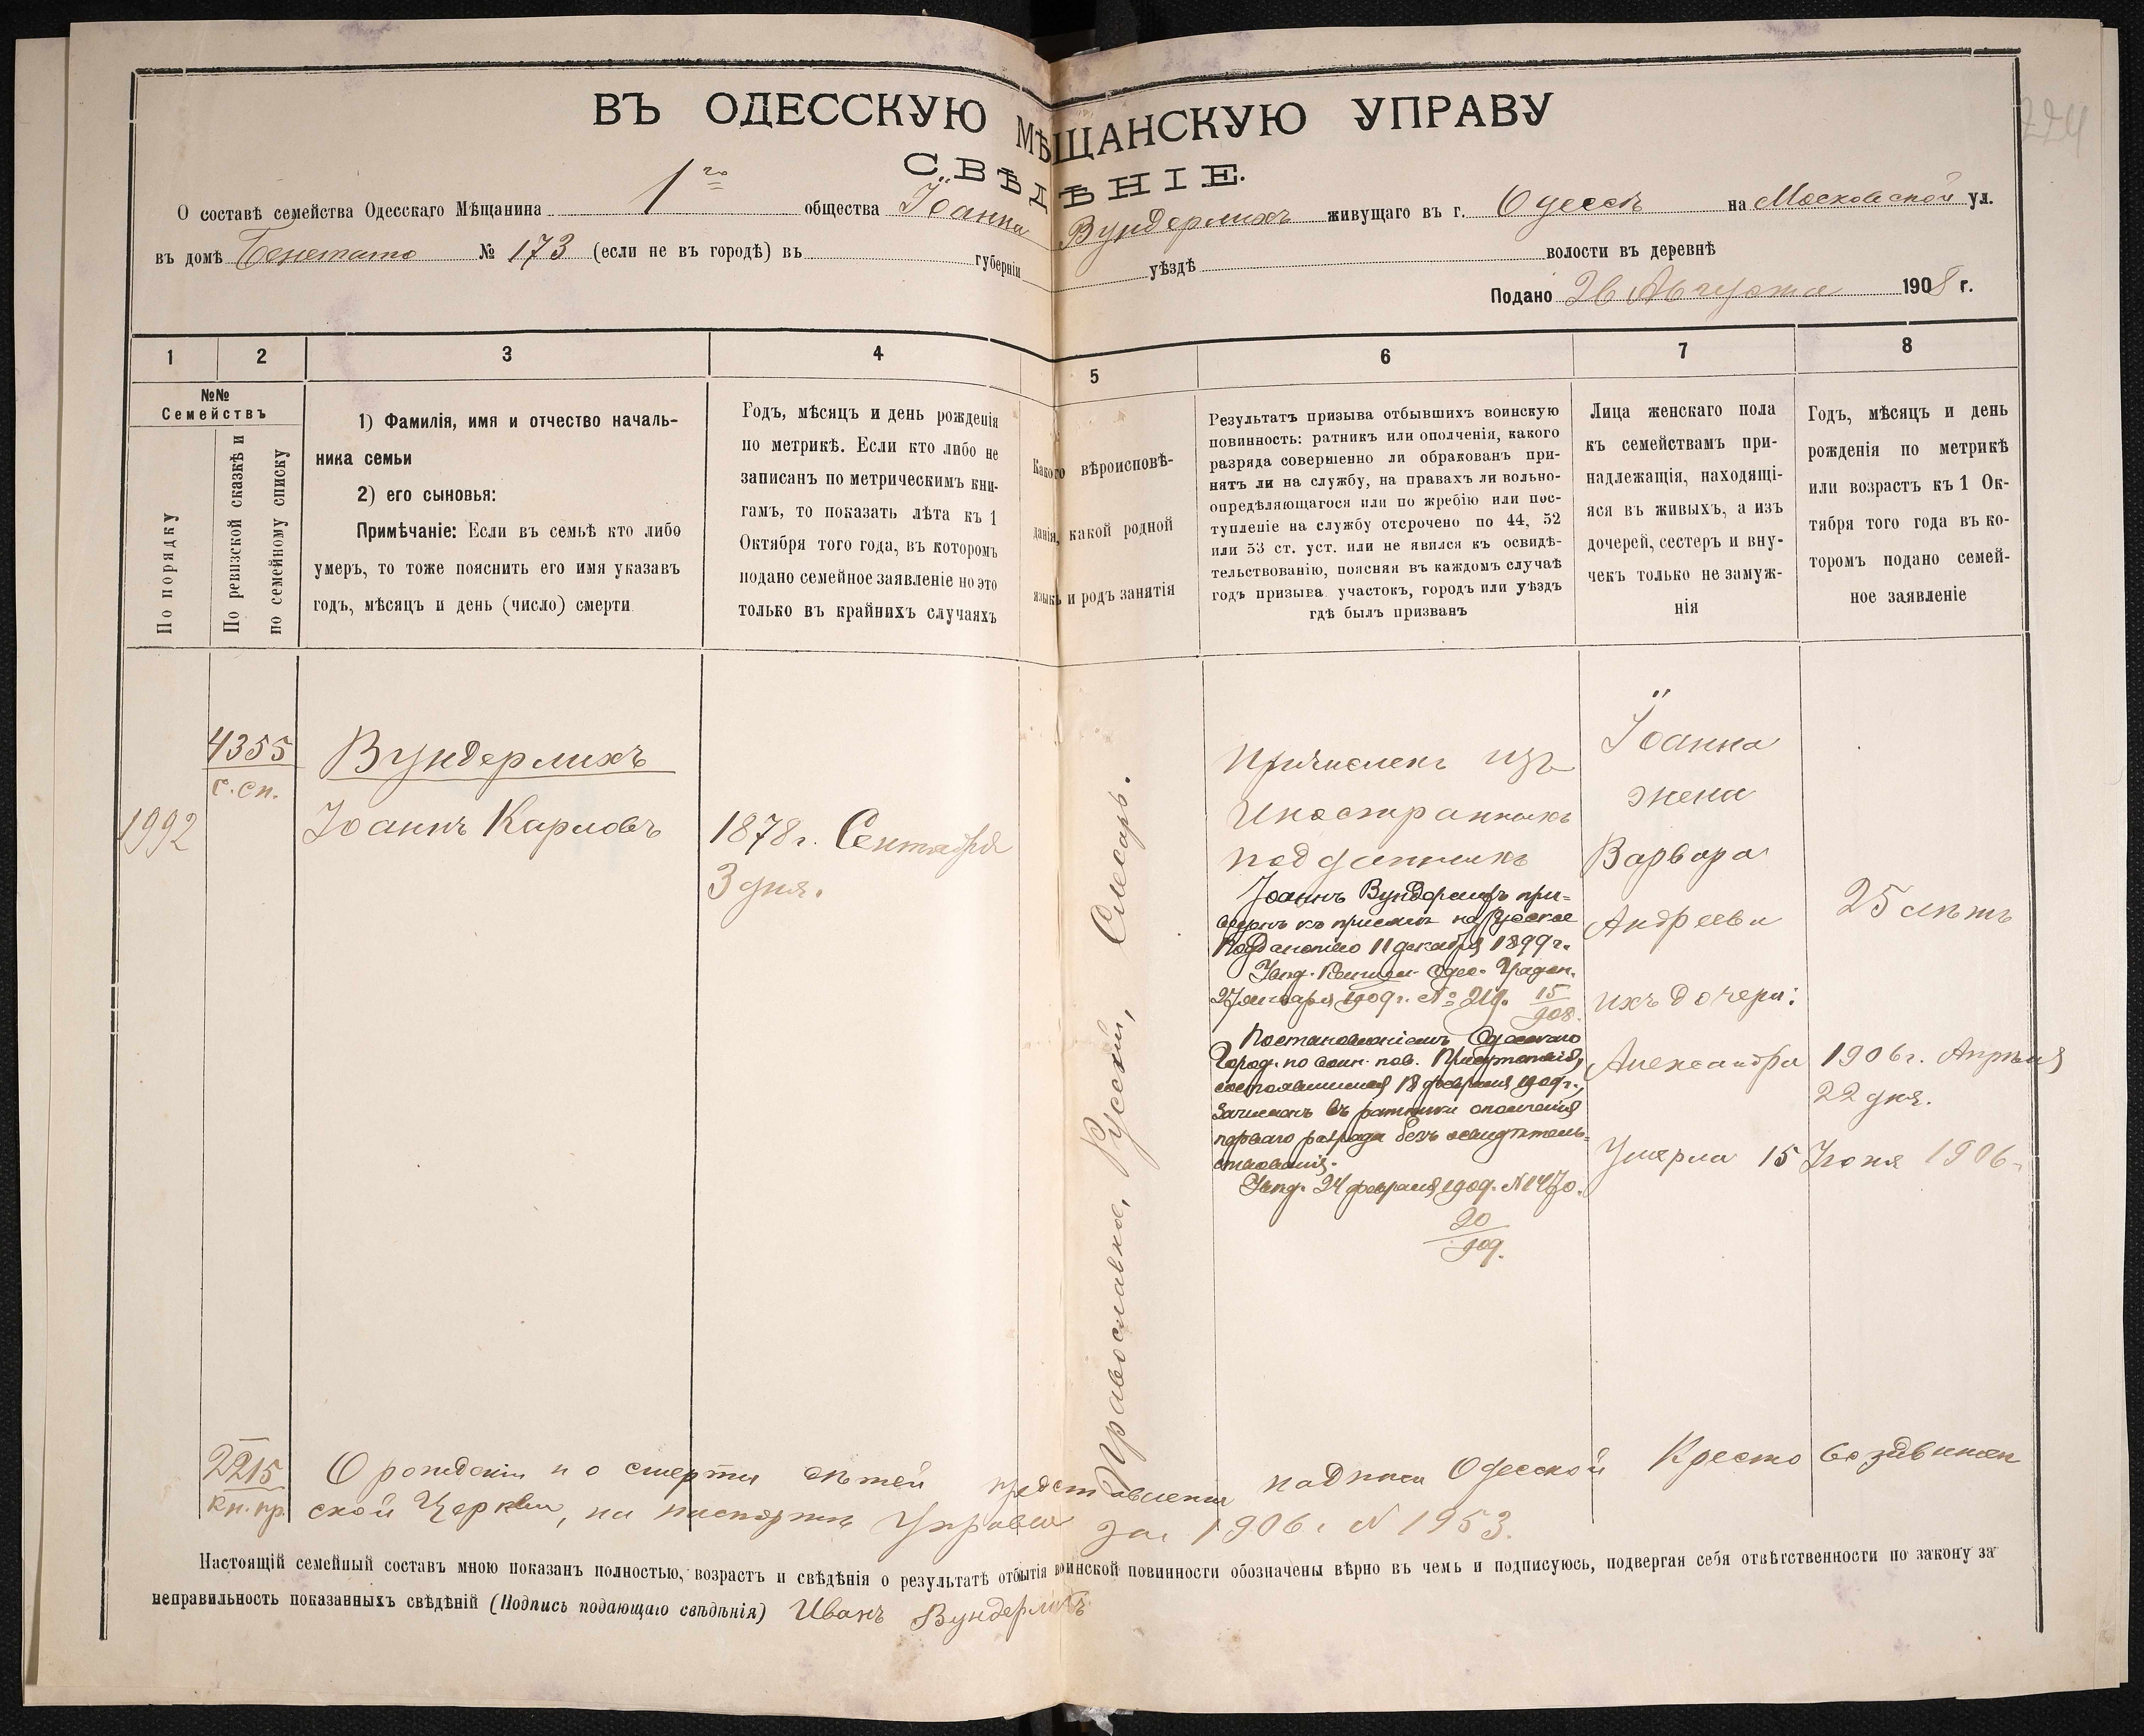 224
ВЪ ОДЕССКУЮ МѢЩАНСКУЮ УПРАВУ
СВѢДѢНІЕ.
О составѣ семейства Одесскаго Мѣщанина 1го общества Іоанна Вундерлихъ живущаго въ г. Одессѣ на Московской ул.
въ домѣ Бенетато № 173 (если не въ городѣ) въ губерніи уѣздѣ волости въ деревнѣ
Подано 26 Августа 1908 г.
1 2 3 4 5 6 7 8
№№
Семействъ
По порядку
По ревизской сказкѣ и
по семейному списку
1) Фамилія, имя и отчество началь-
ника семьи
2) его сыновья:
Примѣчаніе: Если въ семьѣ кто либо
умеръ, то тоже пояснить его имя указавъ
годъ, мѣсяцъ и день (число) смерти
Годъ, мѣсяцъ и день рожденія
по метрикѣ. Если кто либо не
записанъ по метрическимъ кни-
гамъ, то показать лѣта къ 1
Октября того года, въ которомъ
подано семейное заявленіе но это
только въ крайнихъ случаяхъ
Какого вѣроисповѣ-
данія, какой родной
языкъ и родъ занятія
Результатъ призыва отбывшихъ воинскую
повинность: ратникъ или ополченія, какого
разряда совершенно ли обракованъ при-
нятъ ли на службу, на правахъ ли вольно-
опредѣляющагося или по жребію или пос-
тупленіе на службу отсрочено по 44, 52
или 53 ст. уст. или не явился къ освидѣ-
тельствованію, поясняя въ каждомъ случаѣ
годъ призыва участокъ, городъ или уѣздъ
гдѣ былъ призванъ
Лица женскаго пола
къ семействамъ при-
надлежащія, находящі-
яся въ живыхъ, а изъ
дочерей, сестеръ и вну-
чекъ только не замуж-
нія
Годъ, мѣсяцъ и день
рожденія по метрикѣ
или возрастъ къ 1 Ок-
тября того года въ ко-
торомъ подано семей-
ное заявленіе
1992
4355
с. сп.
Вундерлихъ
Іоаннъ Карловъ
1878 г. Сентября
3 дня.
Православная, Русскій, Слесарь.
Причисленъ изъ
Иностранныхъ
подданныхъ
Іоаннъ Вундерлихъ при-
веденъ къ присягѣ на Русское
Подданство 11 декабря 1899 г.
Одес. Градон.
27 января 1909 г. № 219. 15/908.
Постановленіемъ Одесскаго
Город. по воин. пов. Присутствія,
состоявшимся 18 февраля 1909 г.,
зачисленъ въ ратники ополченія
перваго разряда безъ освидѣтель-
ствованія.
24 февраля 1909. № 1470.
20/909.
Іоанна
жена
Варвара
Андреева
25 лѣтъ
ихъ дочери:
Александра 1906 г. Апрѣля
22 дня.
Умерла 15 Іюня 1906
2215
кн. пр.
О рожденіи и о смерти дѣтей представлена надпись Одесской Кресто Воздвижен
ской Церкви, на паспортѣ Управы за 1906 г. № 1953.
Настоящій семейный составъ мною показанъ полностью, возрастъ и свѣдѣнія о результатѣ отбытія воинской повинности обозначены вѣрно въ чемъ и подписуюсь, подвергая себя отвѣтственности по закону за
неправильность показанныхъ свѣдѣній (Подпись подающаго свѣдѣнія) Иванъ Вундерлихъ